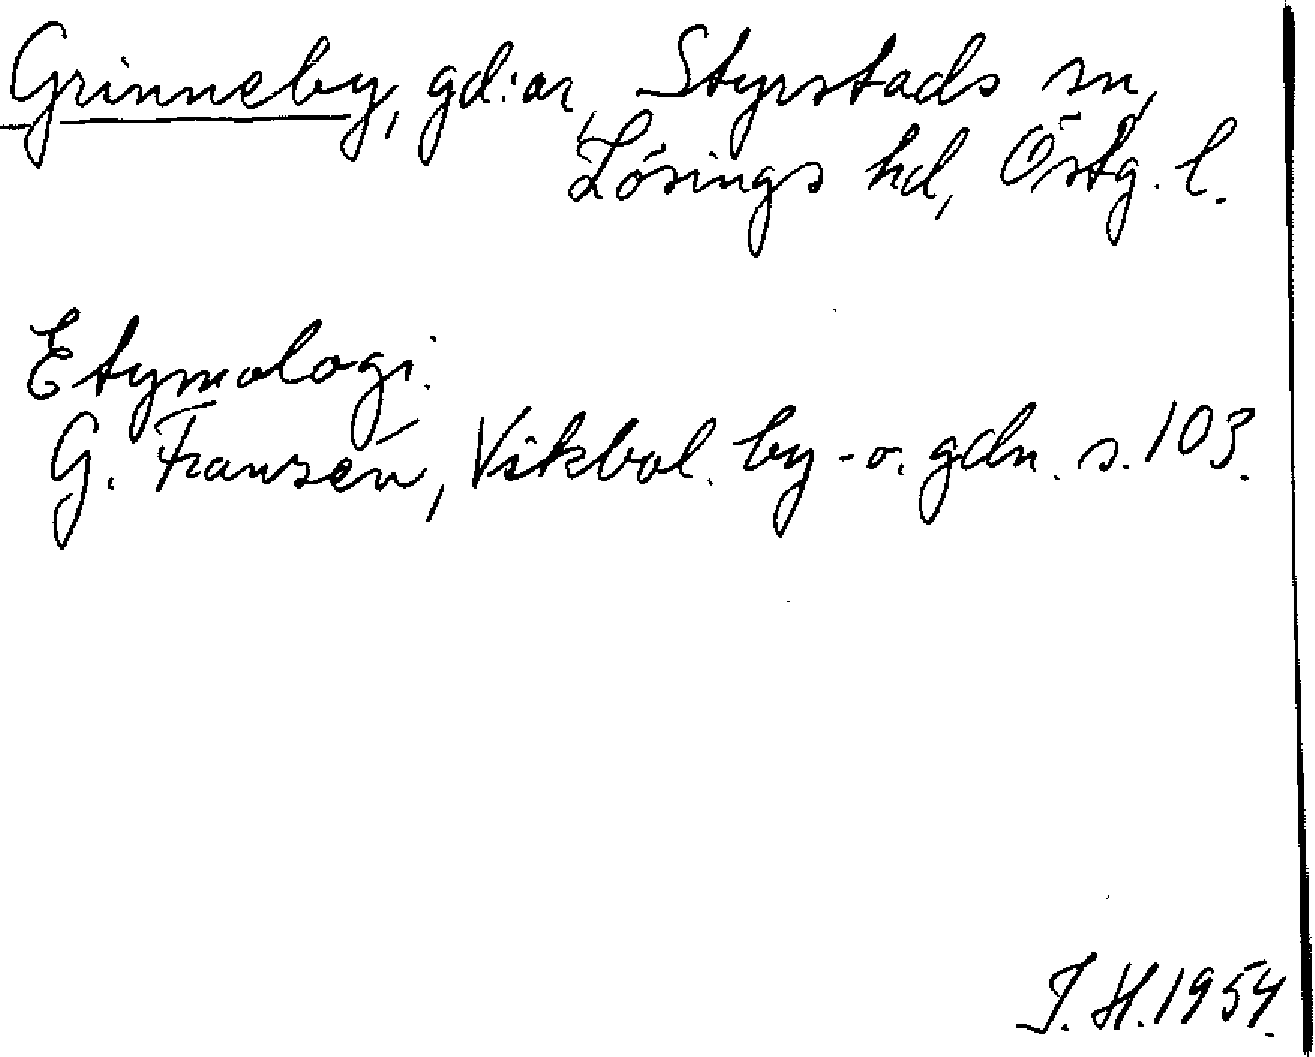 Grinneby, gd:ar, Styrstads sn,
Lösings hd, Östg. l.
Etymologi.
G. Franzén, Vikbol. by- o. gdn. s. 103.
I. H. 1954.